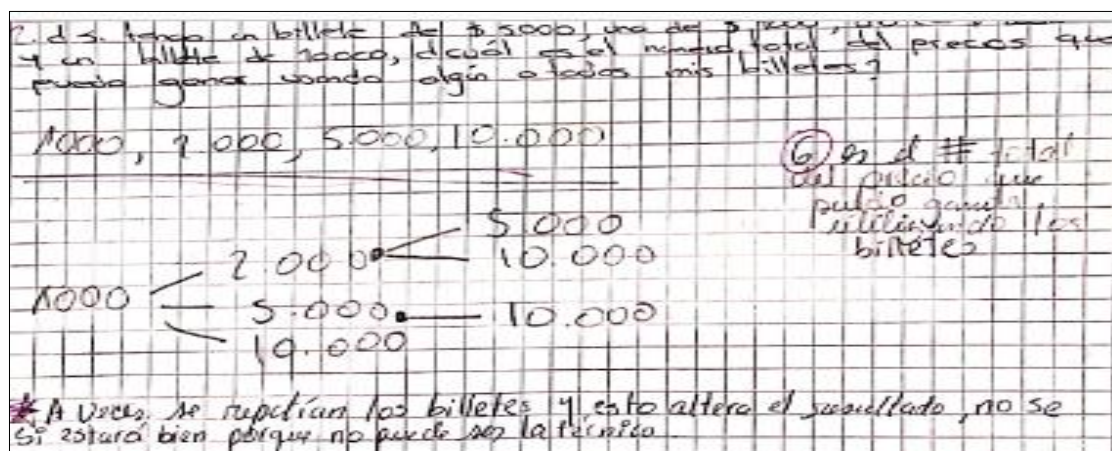 2. d s. tengo un billete de $ 5000, uno de $
y un billete de 10000, ¿cuál es el numero total del precios que
puedo ganar usando algún o todos mis billetes?
1000, 2.000, 5.000, 10.000
6 es el # total
del precio que
puedo ganar
utilizando los
billetes
5.000
2.000 10.000
1000 5.000 10.000
10.000
* A veces se repetían los billetes y esto altera el resultado, no se
si estará bien porque no puede ser la técnica